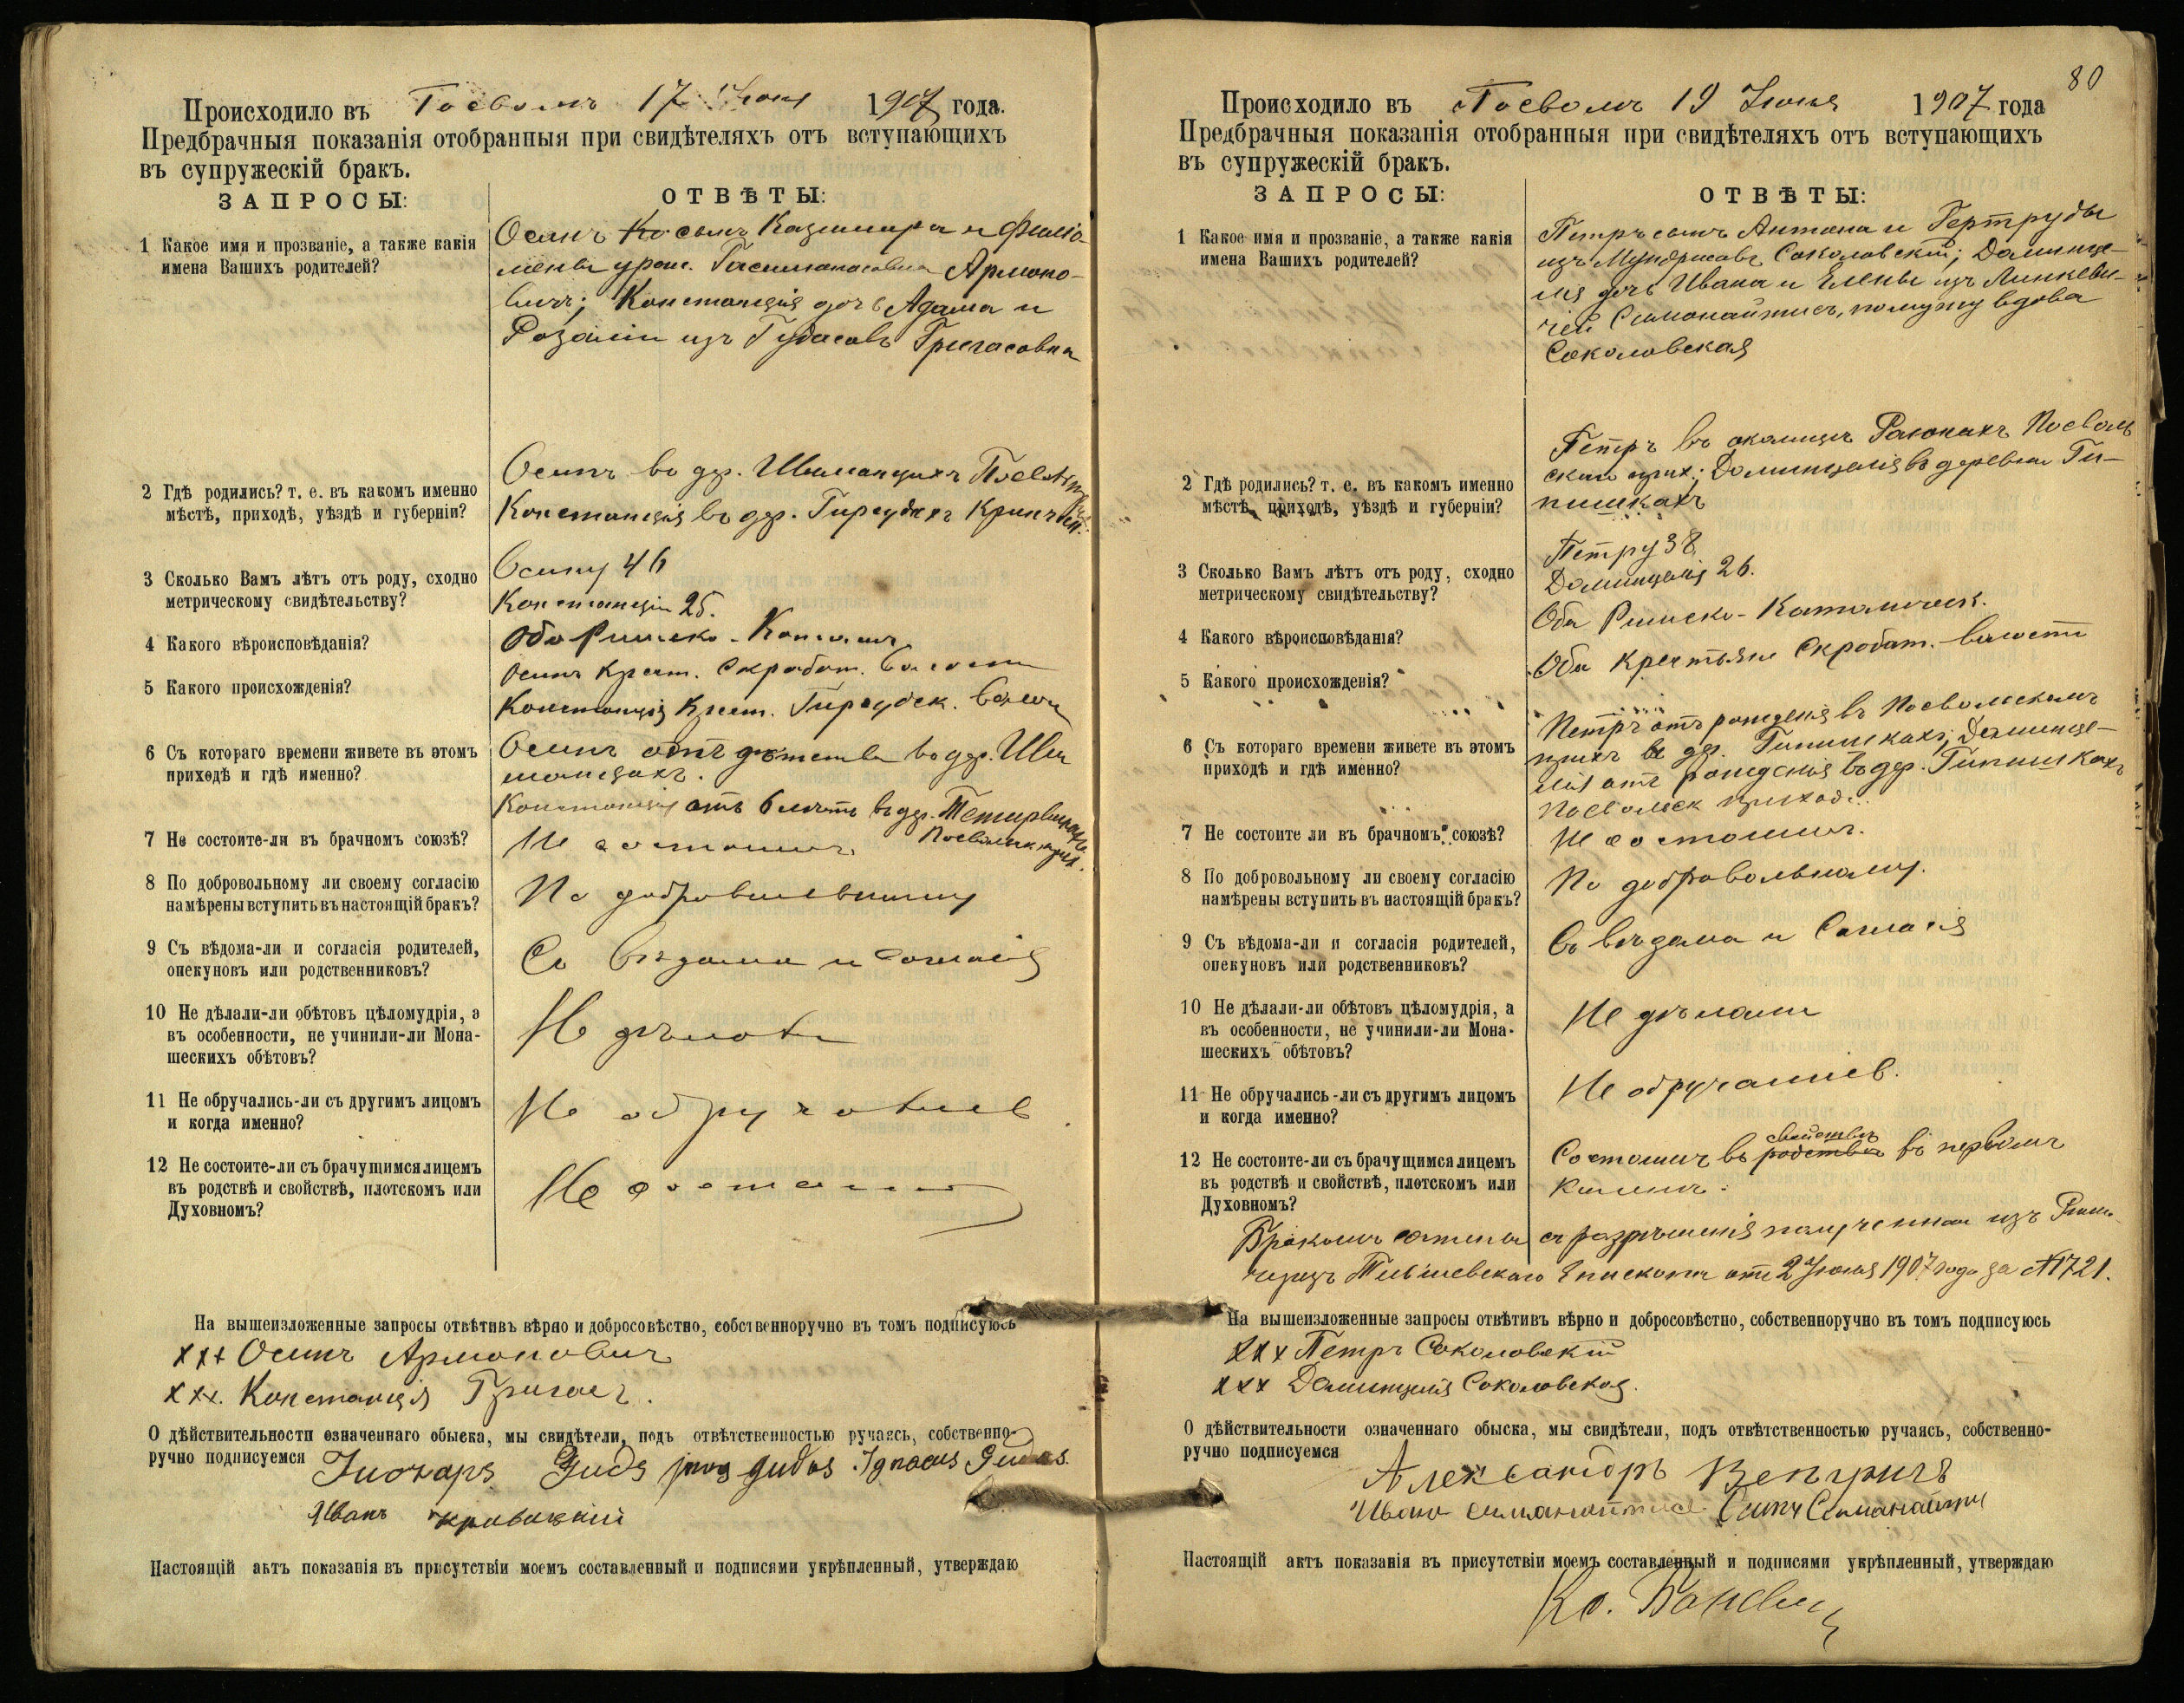 Происходило въ Посволѣ 17 Іюня 1907 года.
Предбрачныя показанія отобранныя при свидѣтеляхъ отъ вступающихъ
въ супружескій бракъ.
ЗАПРОСЫ:
ОТВѢТЫ:
1 Какое имя и прозваніе, а также какія
имена Вашихъ родителей?
Осипъ сынъ Казимира и Фило-
мены урож. Армоно-
вичъ; Констанція дочь Адама и
Розаліи изъ Гудасовъ Григасовна
2 Гдѣ родились? т. е. въ какомъ именно
мѣстѣ, приходѣ, уѣздѣ и губерніи?
Осипъ въ дер.
Констанція въ дер.
3 Сколько Вамъ лѣтъ отъ роду, сходно
метрическому свидѣтельству?
Осипу 46
Констанціи 25.
4 Какого вѣроисповѣданія?
Оба Римско-Католич.
5 Какого происхожденія?
Осипъ Крест. Скробот. волости
Констанція Крест. волости
6 Съ котораго времени живете въ этомъ
приходѣ и гдѣ именно?
Осипъ отъ дѣтства въ дер.
Констанція отъ 6 лѣтъ въ дер.
Посвольск. прих.
7 Не состоите-ли въ брачномъ союзѣ?
Не состоимъ
8 По добровольному ли своему согласію
намѣрены вступить въ настоящій бракъ?
По добровольному
9 Съ вѣдома-ли и согласія родителей,
опекуновъ или родственниковъ?
Съ вѣдома и согласія
10 Не дѣлали-ли обѣтовъ цѣломудрія, а
въ особенности, не учинили-ли Мона-
шескихъ обѣтовъ?
Не дѣлали
11 Не обручались-ли съ другимъ лицомъ
и когда именно?
Не обручались
12 Не состоите-ли съ брачущимся лицемъ
въ родствѣ и свойствѣ, плотскомъ или
Духовномъ?
Не состоимъ
На вышеизложенные запросы отвѣтивъ вѣрно и добросовѣстно, собственноручно въ томъ подписуюсь
ххх Осипъ Армоновичъ
ххх. Констанція Григасъ.
О дѣйствительности означеннаго обыска, мы свидѣтели, подъ отвѣтственностью ручаясь, собственно-
ручно подписуемся
Gudas Ignacus Gudas.
Иванъ
Настоящій актъ показанія въ присутствіи моемъ составленный и подписями укрѣпленный, утверждаю
80
Происходило въ Посволѣ 19 Іюня 1907 года
Предбрачныя показанія отобранныя при свидѣтеляхъ отъ вступающихъ
въ супружескій бракъ.
ЗАПРОСЫ:
ОТВѢТЫ:
1 Какое имя и прозваніе, а также какія
имена Вашихъ родителей?
Петръ сынъ Антона и Гертруды
изъ Мундрисовъ Соколовскій; Доминце-
ля дочь Ивана и Елены изъ Линкеви-
чей Симонайтисъ, по мужу вдова
Соколовская
2 Гдѣ родились? т. е. въ какомъ именно
мѣстѣ, приходѣ, уѣздѣ и губерніи?
Петръ въ околицѣ Посволь
скаго прих.; Доминцелія въ деревни Ги-
пишкахъ
3 Сколько Вамъ лѣтъ отъ роду, сходно
метрическому свидѣтельству?
Петру 38
Доминцелія 26.
4 Какого вѣроисповѣданія?
Оба Римско-Католическ.
5 Какого происхожденія?
Оба Крестьяне Скробот. волости
6 Съ котораго времени живете въ этомъ
приходѣ и гдѣ именно?
Петръ отъ рожденія въ Посвольскомъ
прих. въ дер. Гипишкахъ; Доминце-
лія отъ рожденія въ дер. Гипишкахъ
Посвольск. прихода.
7 Не состоите ли въ брачномъ союзѣ?
Не состоимъ.
8 По добровольному ли своему согласію
намѣрены вступить въ настоящій бракъ?
По добровольному.
9 Съ вѣдома-ли и согласія родителей,
опекуновъ или родственниковъ?
Съ вѣдома и согласія
10 Не дѣлали-ли обѣтовъ цѣломудрія, а
въ особенности, не учинили-ли Мона-
шескихъ обѣтовъ?
Не дѣлали
11 Не обручались-ли съ другимъ лицомъ
и когда именно?
Не обручались.
12 Не состоите-ли съ брачущимся лицемъ
въ родствѣ и свойствѣ, плотскомъ или
Духовномъ?
свойствѣ
Состоимъ въ родствѣ въ первомъ
колѣнѣ.
разрѣшенія полученная изъ Рима
чрезъ Тельшевскаго Епископа отъ 2 Іюня 1907 года за № 1721.
На вышеизложенные запросы отвѣтивъ вѣрно и добросовѣстно, собственноручно въ томъ подписуюсь
ххх Петръ Соколовскій
ххх Доминцелія Соколовская.
О дѣйствительности означеннаго обыска, мы свидѣтели, подъ отвѣтственностью ручаясь, собственно-
ручно подписуемся
Александръ Венгрисъ
Ивано Симонайтисъ Осипъ Симонайтисъ
Настоящій актъ показанія въ присутствіи моемъ составленный и подписями укрѣпленный, утверждаю